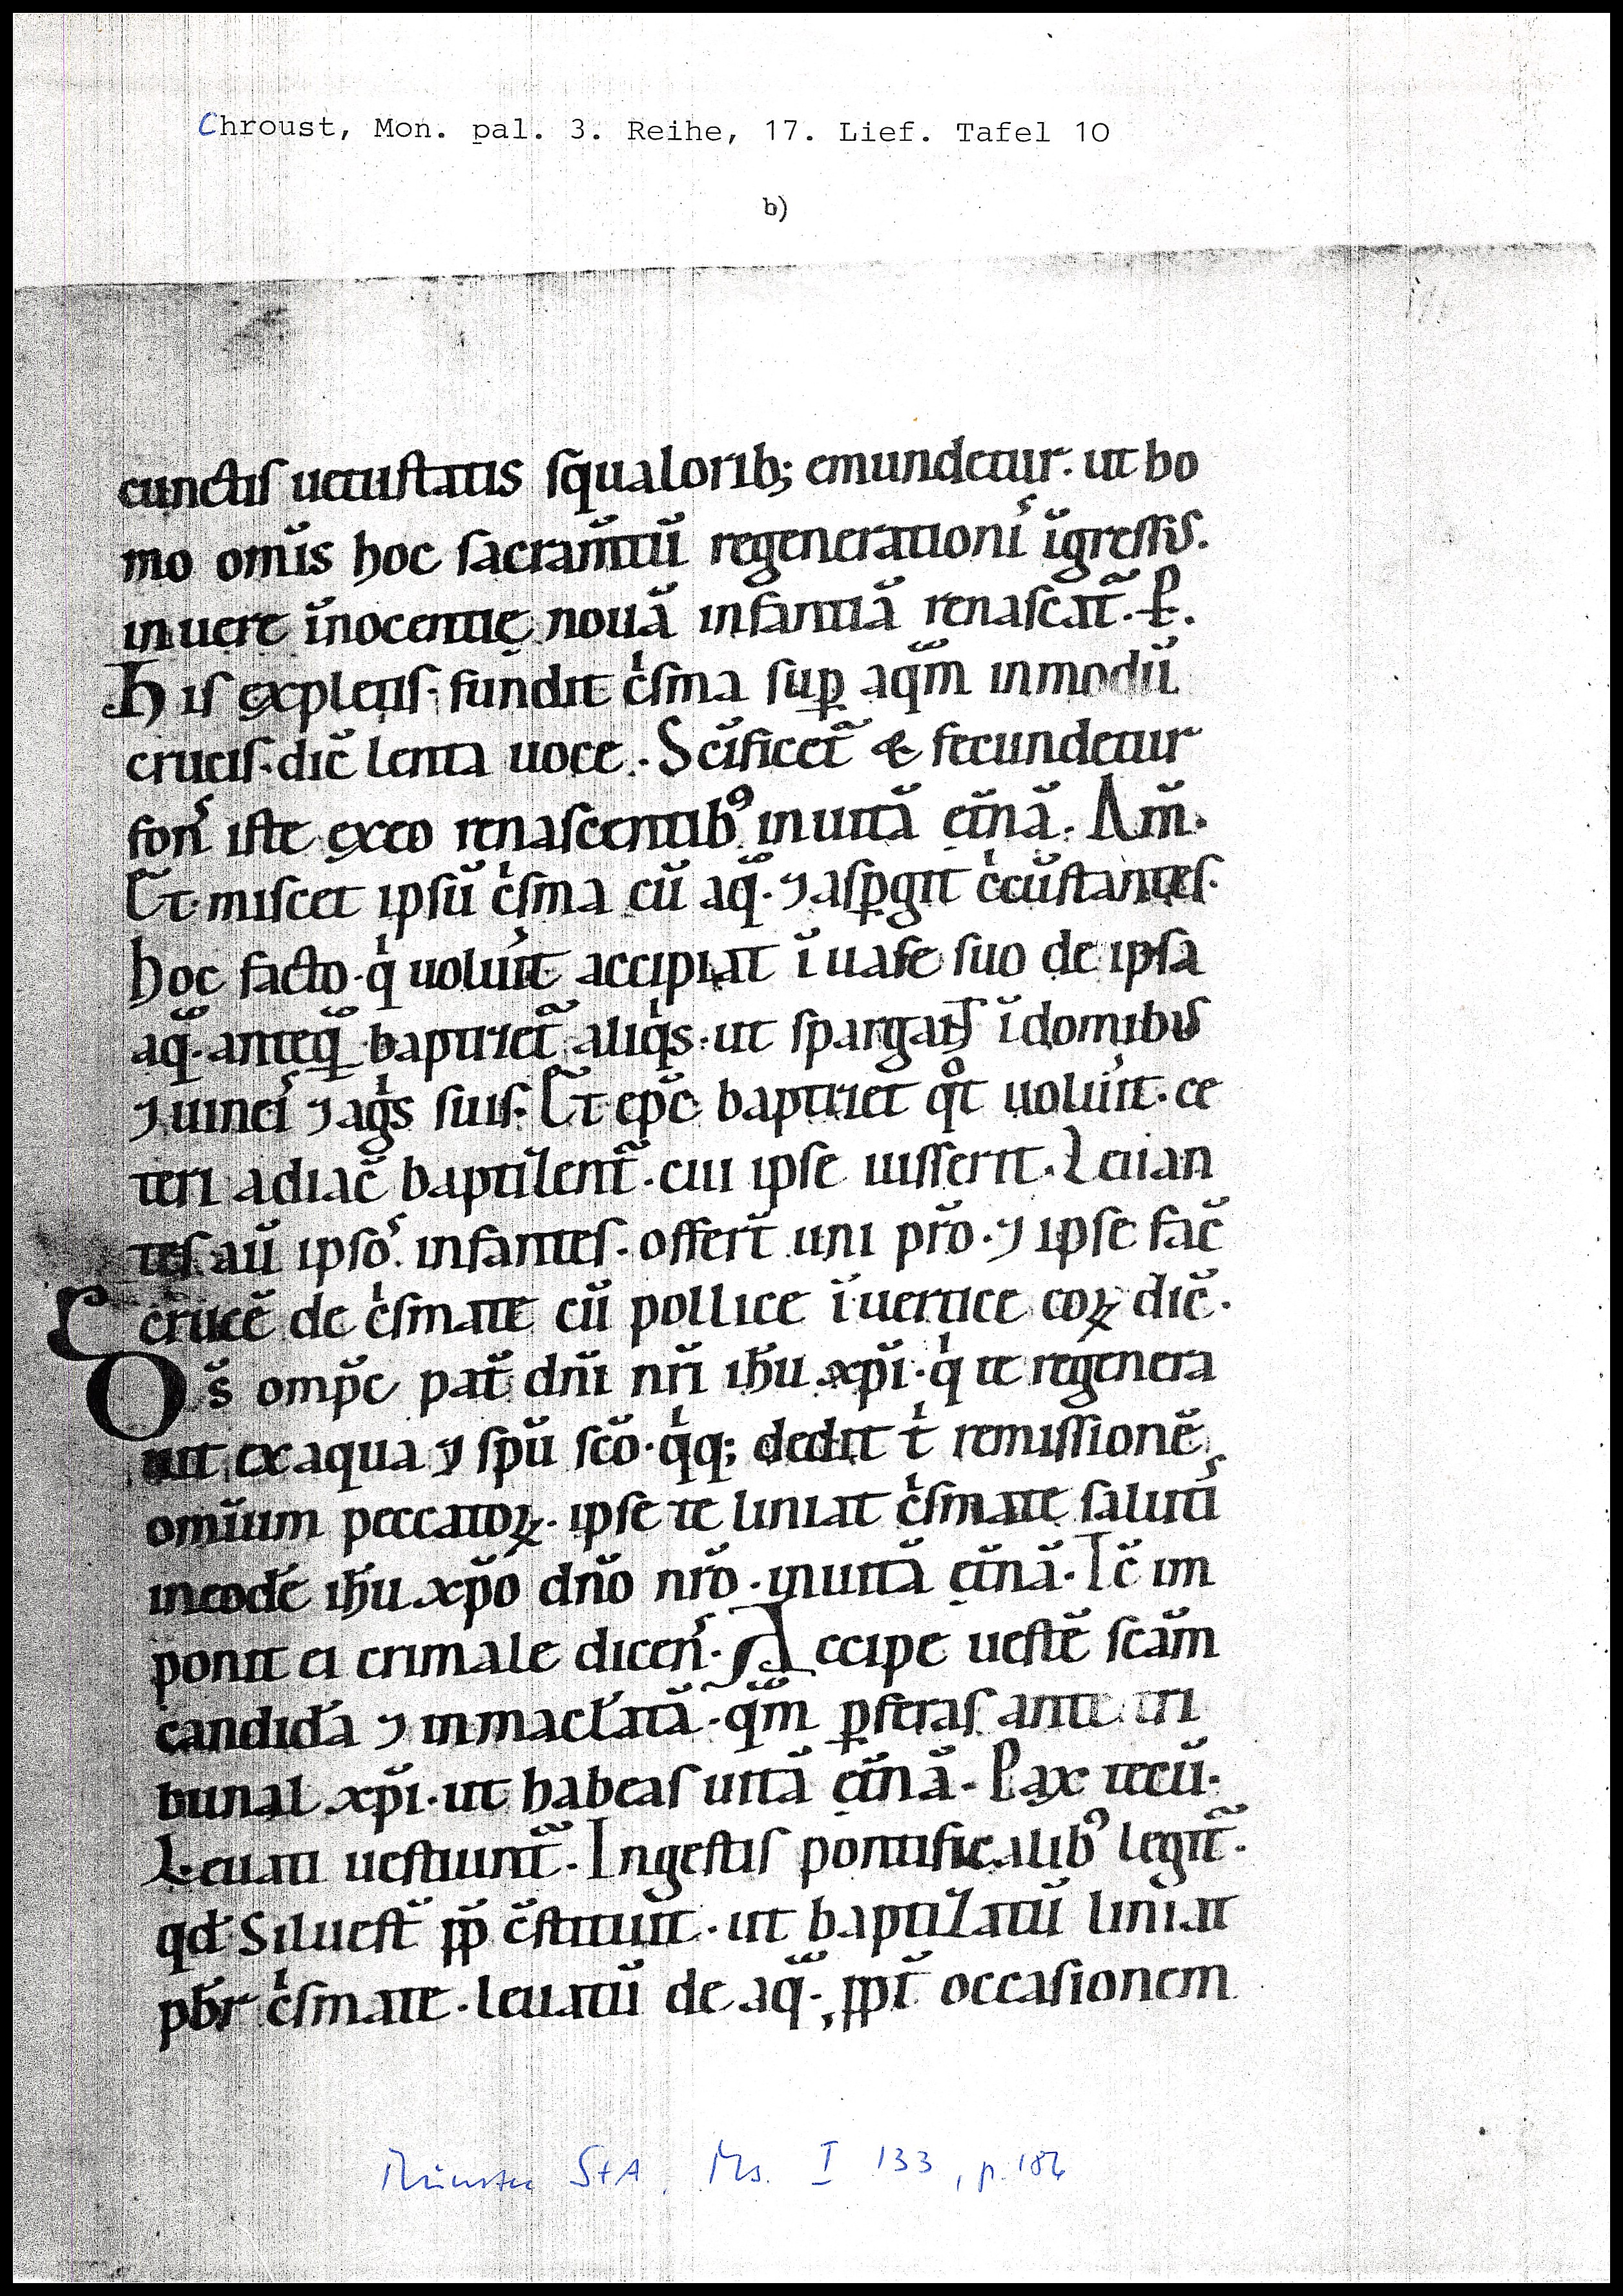 Chroust, Mon. pal. 3. Reihe, 17. Lief. Tafel 10
b)
cunctis uetustatis squalorib; emundetur. ut ho
mo om̄is hoc sacram̄tū regenerationiˢ īgressus.
in uere īnocentię nouā infantiā renascat̃. P̵.
His expletis. fundit cͥsma suꝑ aqᷓm in modū
crucis. dic̄ lenta uoce. Sc̄ificet̃ & fecundetur
fonˢ iste ex eo renascentibꝰ in uitā et̄nā. Am̄.
Et miscet ipsū cͥsma cū aqᷓ. ⁊ asꝑgit cͥcūstantes.
Hoc facto. qͥ uoluit̾ accipiat ī uase suo de ipsa
aqᷓ. anteqᷓ baptizet̃ aliqͥs. ut spargat̃ ī domibus
⁊ uineiˢ ⁊ agͥs suis. Et ep̄c baptizet qͦt uoluit̾. ce
teri a diac̄ baptizent̃. cui ipse iusserit. Leuan
tes aū ipsoˢ. infantes. offert̄ uni pr̄o. ⁊ ipse fac̄
crucē de cͥsmate cū pollice ī uertice eoꝝ dic̄.
Ds̄ omp̄c pat̄ dn̄i nr̄i ih̄u xp̄i. qͥ te regenera
uit ex aqua ⁊ sp̄u sc̄o. qͥq; dedit tͥ remissionē
om̄ium peccatoꝝ. ipse te liniat cͥsmate salutiˢ
in eodē ih̄u xp̄o dn̄o nr̄o. in uitā et̄nā. Ic̄ im
ponit ei crimale dicenˢ. Accipe uestē sc̄am
candidā ⁊ inmacl̄atā. qᷓm ꝑferas ante tri
bunal xp̄i. ut habeas uitā et̄nā. Pax tecū.
Leuati uestiunt̃. In gestis pontificalibꝰ legit̃.
qd̄ Siluest̄ pp̄ c̄stituit̾. ut baptizatū liniat
pb̄r cͥsmate. leuatū de aqᷓ. ꝓpt̄ occasionem
Münster StA, Ms. I 133, p. 186